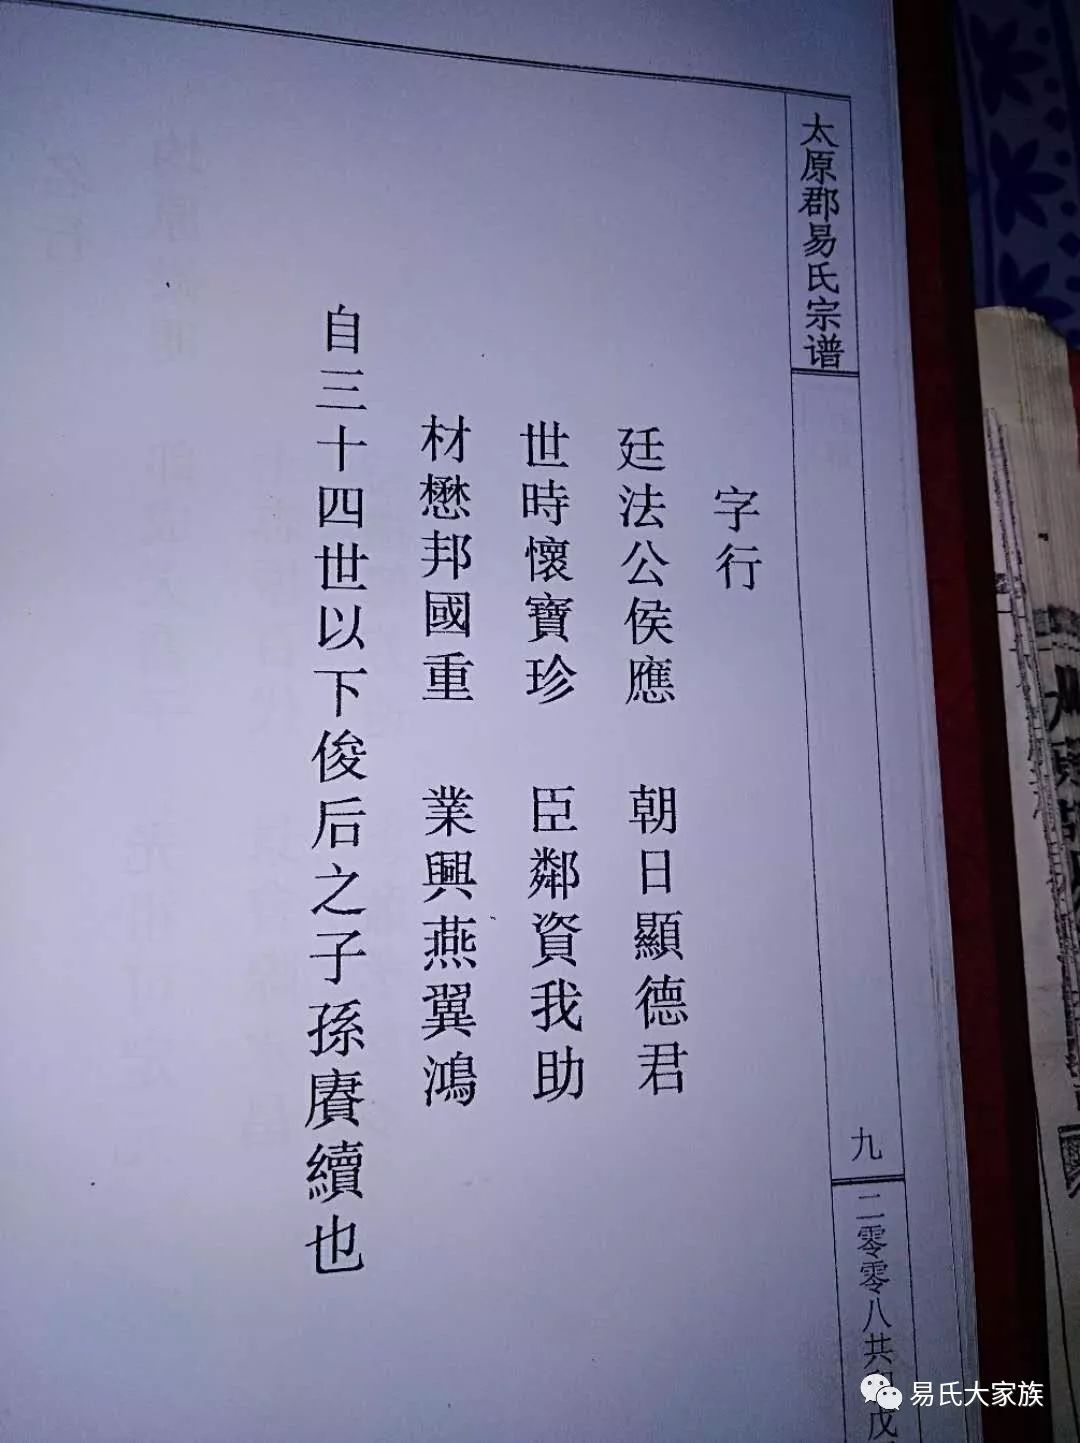 太原郡易氏宗谱
九
二零零八共
字行
廷法公侯應 朝日顯德君
世時懷寶珍 臣鄰資我助
材懋邦國重 業興燕翼鴻
自三十四世以下俊后之子孫賡續也
易氏大家族